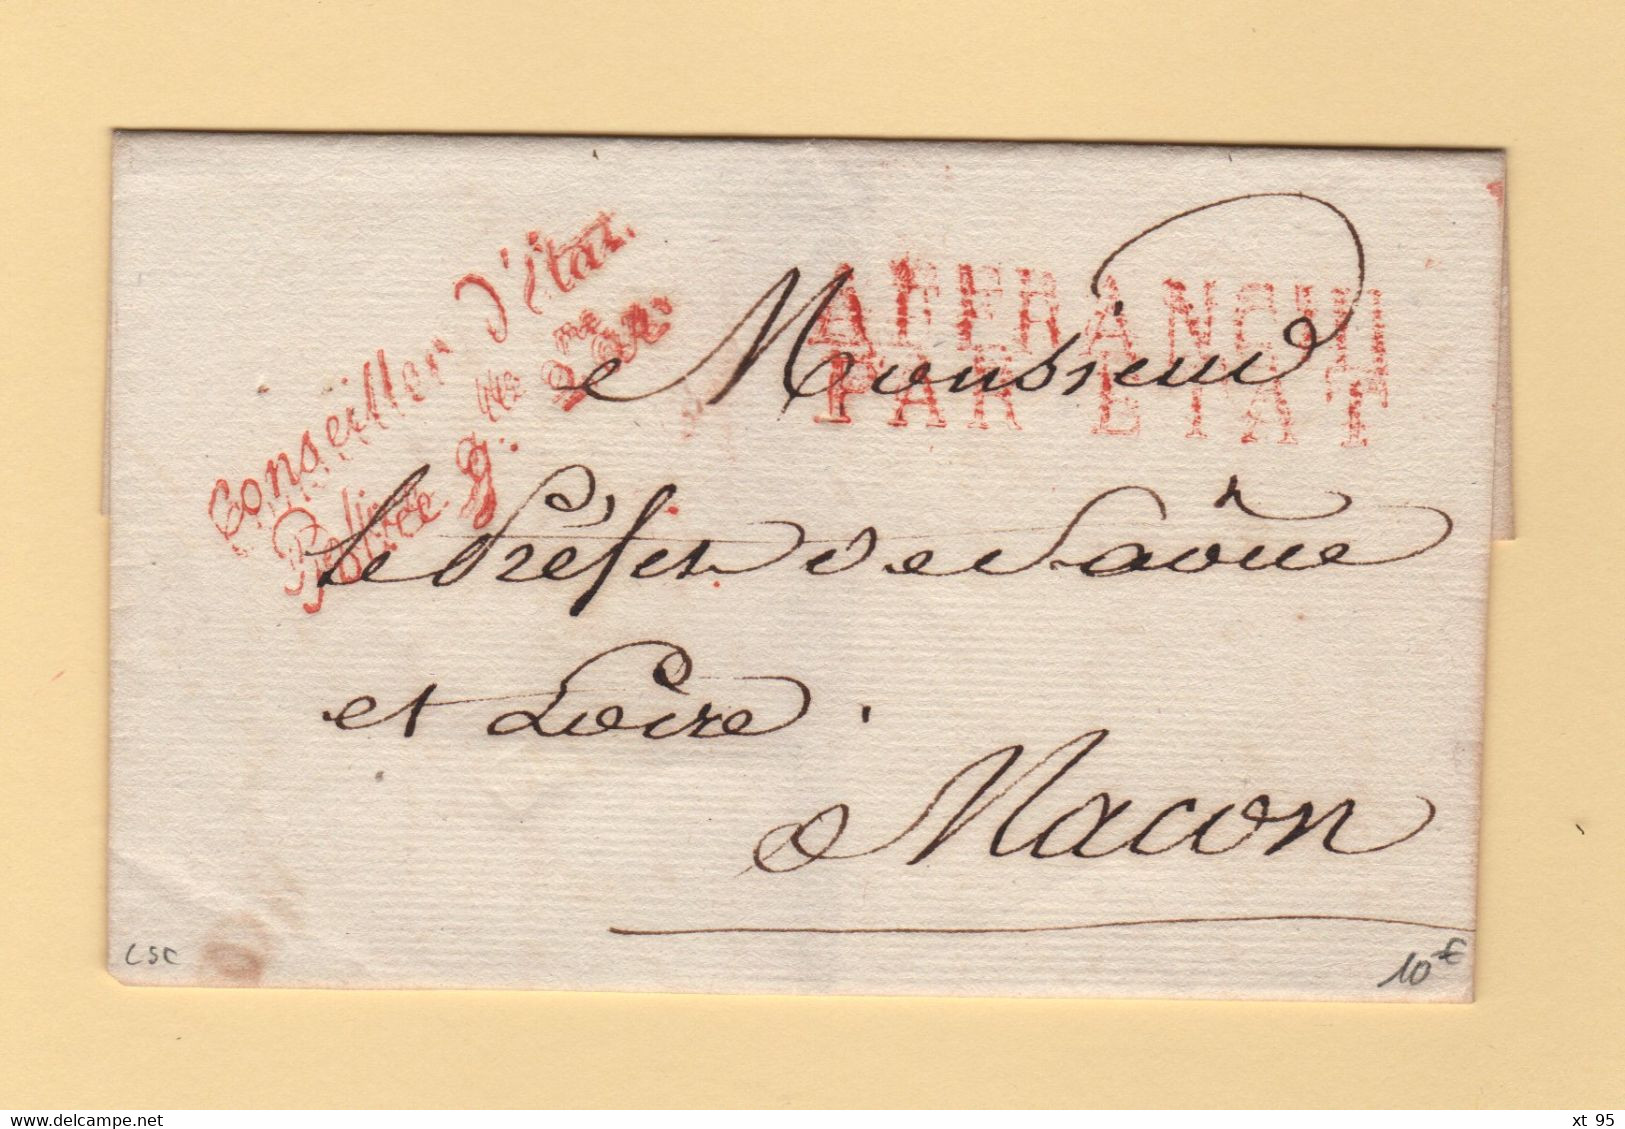 Conseiller d'état.
Police g.
AFFRANCHI
PAR ETAT
Monsieur
le Préfet de Saône
et Loire.
a Macon
LSC
10€
delcampe.net
xt_95